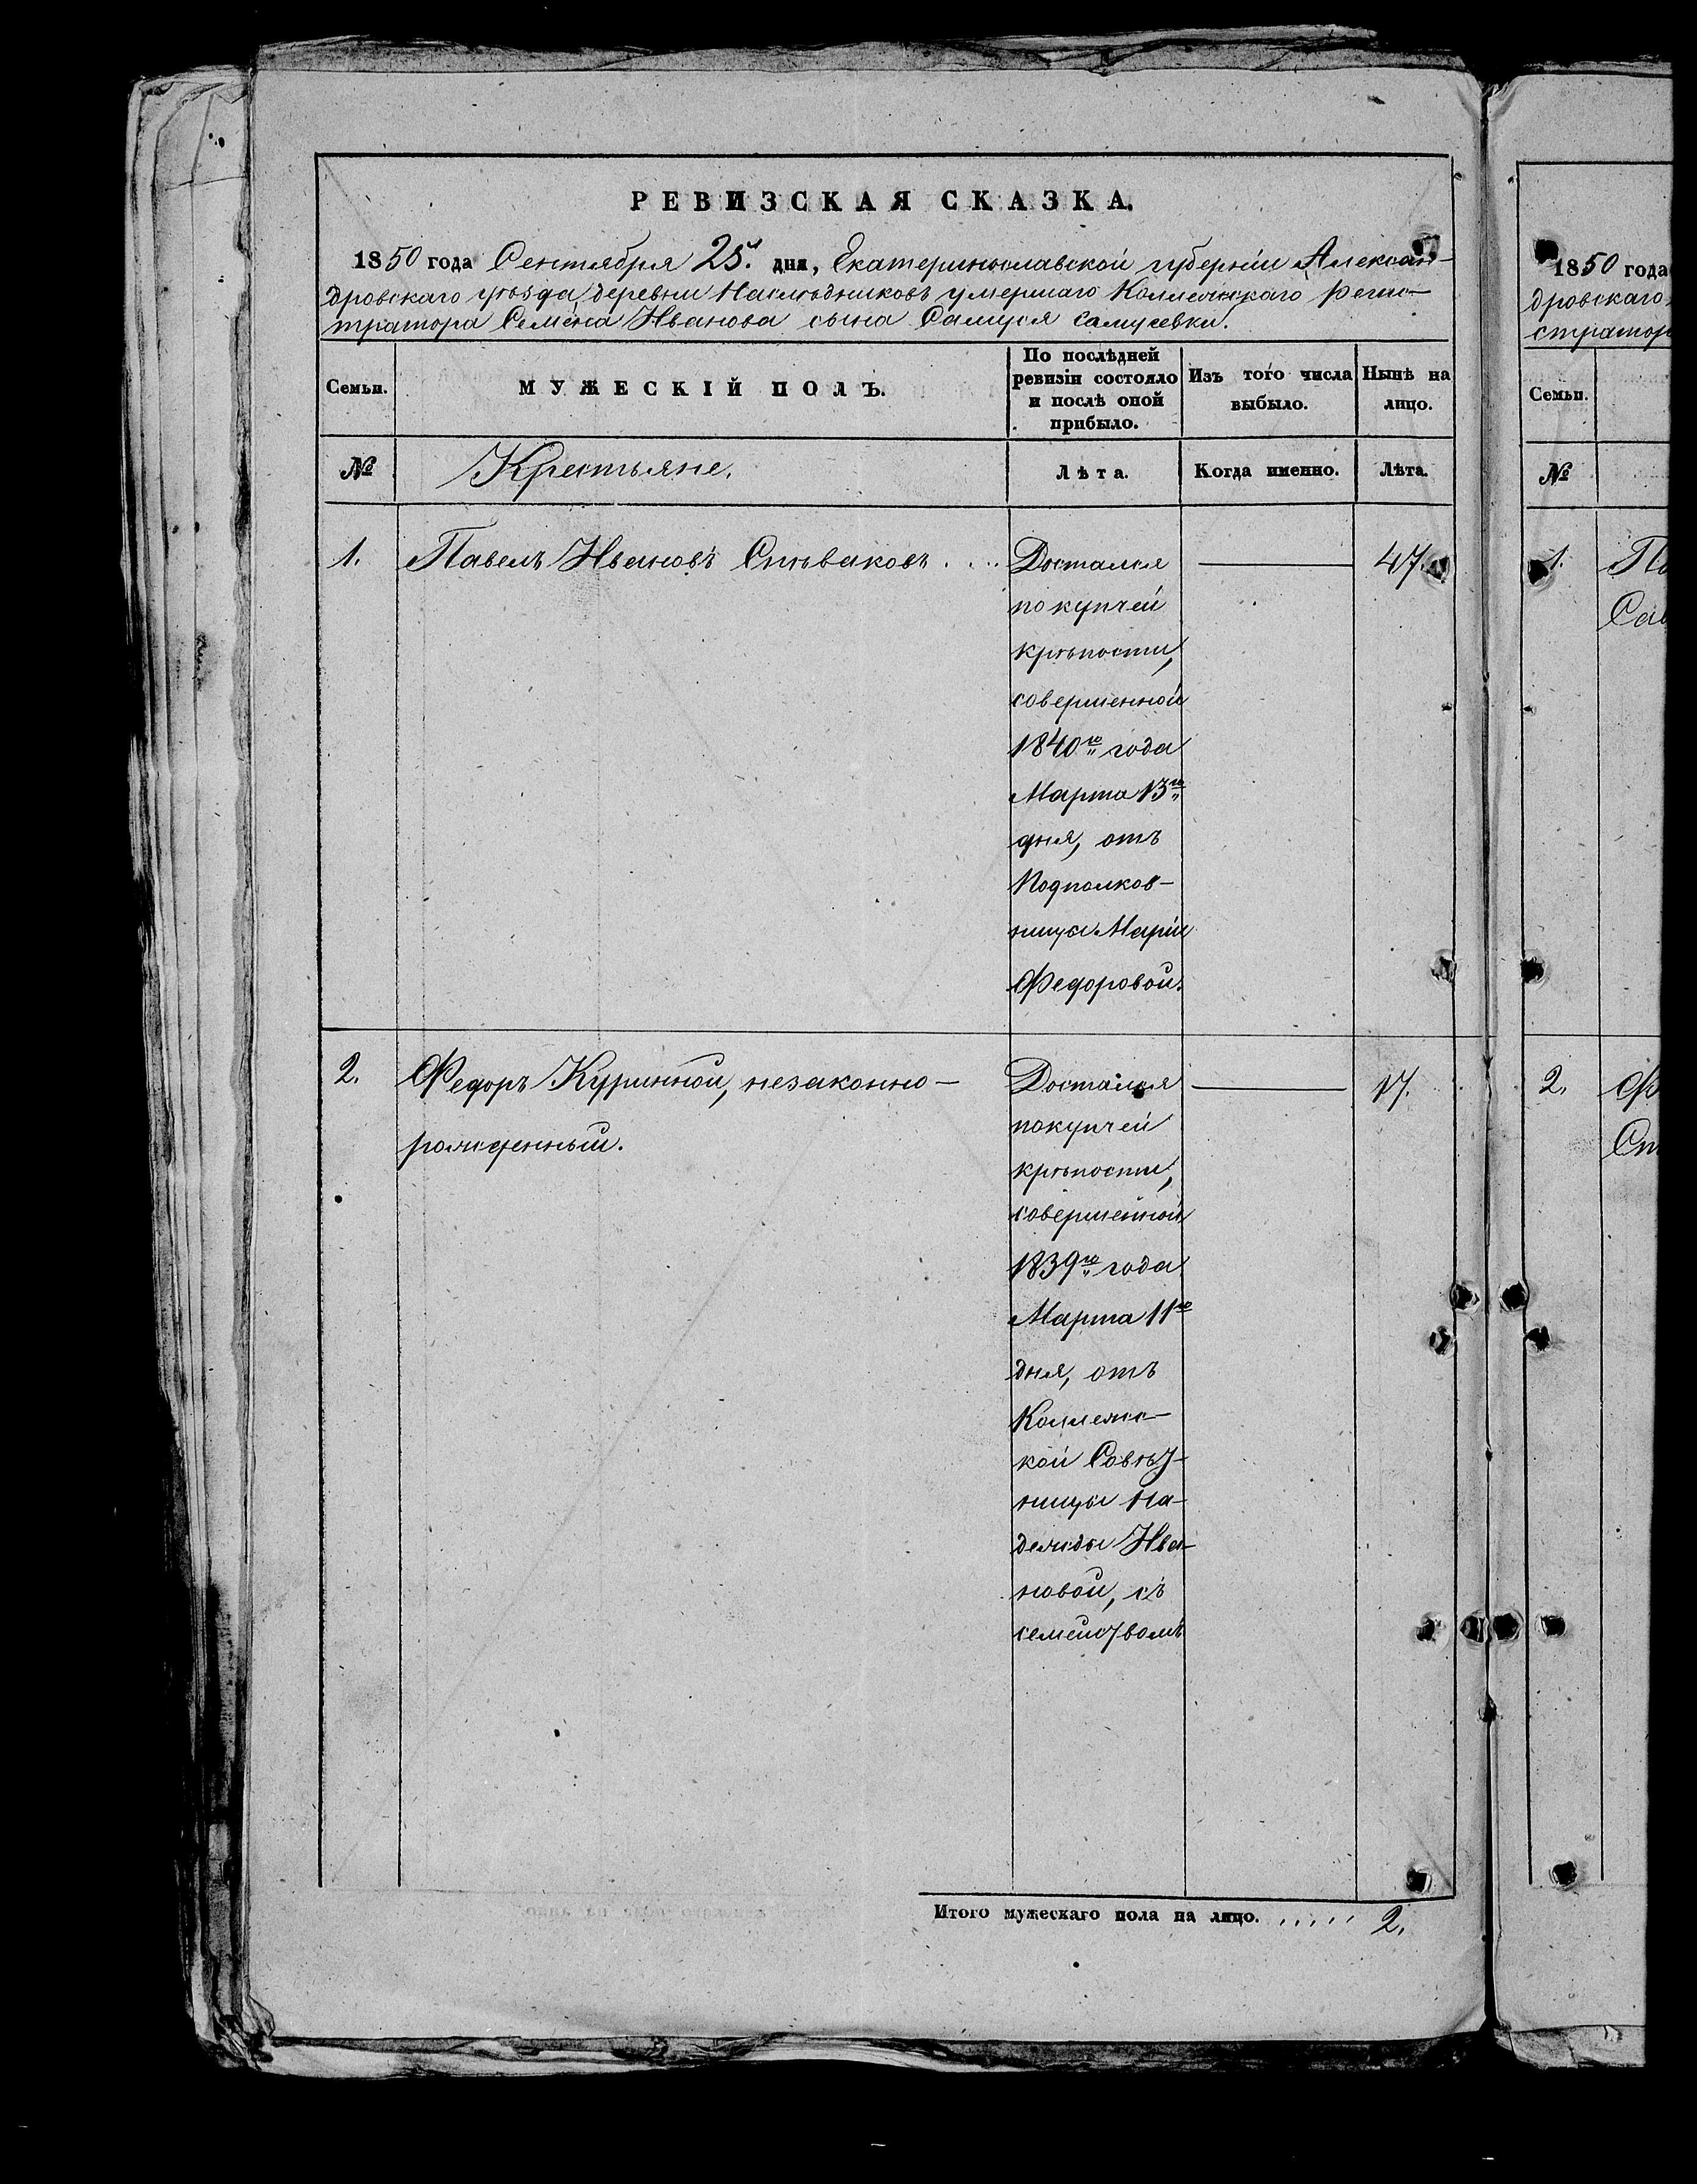 РЕВИЗСКАЯ СКАЗКА.
1850 года Сентября 25. дня, Екатеринославской губерніи Алексан-
дровскаго уѣзда, деревни Наслѣдниковъ умершаго Коллежскаго Реги-
тратора Семена Иванова сына Самуся Самусевки.
Семьи.
МУЖЕСКІЙ ПОЛЪ.
По послѣдней
ревизіи состояло
и послѣ оной
прибыло.
Изъ того числа
выбыло.
Нынѣ на
лицо.
№
Крестьяне.
Лѣта.
Когда именно.
Лѣта.
1.
Павелъ Ивановъ Спѣваковъ . . . .
Достался
по купчей
крѣпости,
совершенной
1840го года
Марта 13го
дня, отъ
Подполков-
ницы Маріи
Федоровой.
47.
2.
Федоръ Куринной, незаконно-
рожденный.
Достался
по купчей
крѣпости,
совершенной
1839го года
Марта 11го
дня, отъ
Коллежс-
кой Совѣт-
ницы На-
дежды Ива-
новой, съ
семействомъ
17.
Итого мужескаго пола на лицо. . . . . . 2.
1850 года
дровскаго
стратор
Семьи.
№
1.
Па
Сав
2.
Ф
Сп